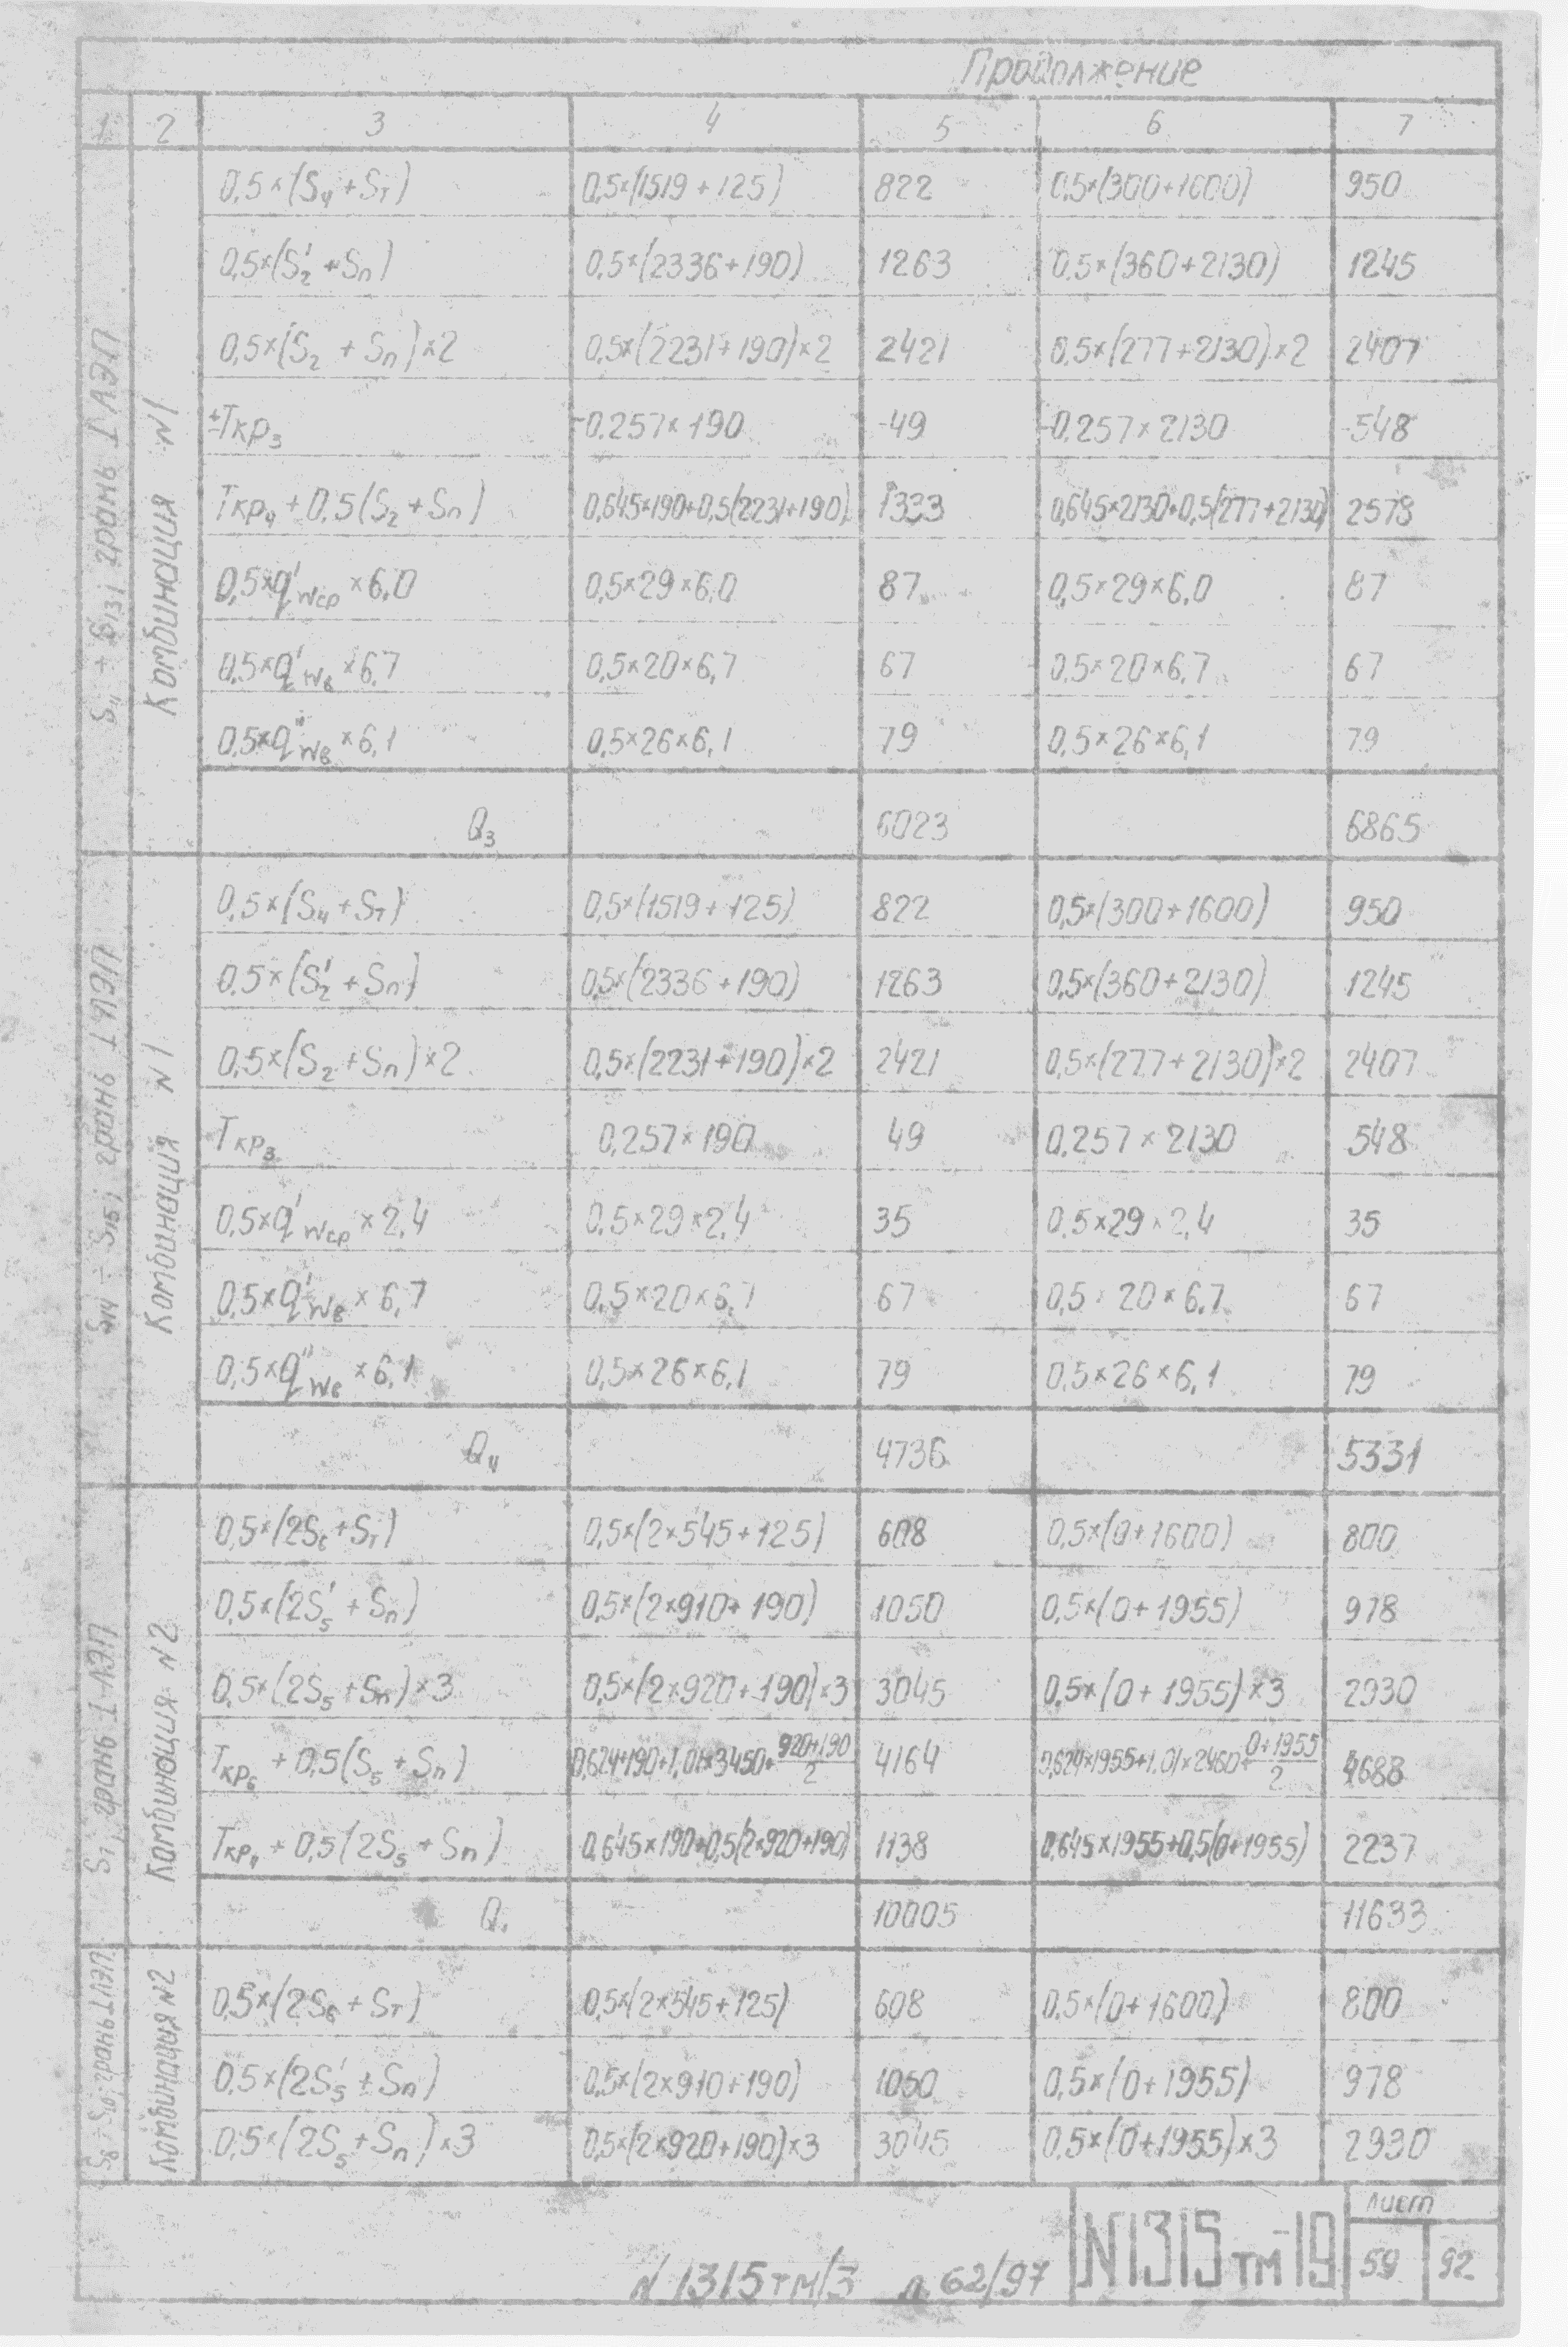 Продолжение
1 2 3 4 5 6 7
S11 ÷ S13; грань I ЛЭП
Комбинация N1
0,5×(S4+Sт) 0,5×(1519+125) 822 0,5×(300+1600) 950
0,5×(S2' +Sп) 0,5×(2336+190) 1263 0,5×(360+2130) 1245
0,5×(S2 + Sп)×2 0,5×(2231+190)×2 2421 0,5×(277+2130)×2 2407
±Ткр3 -0.257×190 -49 -0.257×2130 -548
Ткр4 + 0,5(S2+Sп) 0,645×190+0,5(2231+190) 1333 0,645×2130+0,5(277+2130) 2578
0,5×q'wср ×6,0 0,5×29×6,0 87 0,5×29×6,0 87
0,5×q'wв ×6,7 0,5×20×6,7 67 0,5×20×6,7 67
0,5×q"wв ×6,1 0,5×26×6,1 79 0,5×26×6,1 79
Q3 6023 6865
S14 ÷ S15; грань I ЛЭП
Комбинация N1
0,5×(S4+Sт) 0,5×(1519+125) 822 0,5×(300+1600) 950
0,5×(S2' +Sп) 0,5×(2336+190) 1263 0,5×(360+2130) 1245
0,5×(S2+Sп)×2 0,5×(2231+190)×2 2421 0,5×(277+2130)×2 2407
Ткр3 0,257×190 49 0.257×2130 548
0,5×q'wср ×2,4 0,5×29×2,4 35 0,5×29×2,4 35
0,5×q'wв ×6,7 0,5×20×6,7 67 0,5×20×6,7 67
0,5×q"wв ×6,1 0,5×26×6,1 79 0,5×26×6,1 79
Q4 4736 5331
S7, грань I-ЛЭП
Комбинация N2
0,5×(2S6+Sт) 0,5×(2×545+125) 608 0,5×(0+1600) 800
0,5×(2S5' +Sп) 0,5×(2×910+190) 1050 0,5×(0+1955) 978
0,5×(2S5+Sп)×3 0,5×(2×920+190)×3 3045 0,5×(0+1955)×3 2930
Ткр6 + 0,5(S5+Sп) 0,624×190+1,01×3450+920+190/2 4164 0,624×1955+1.01×2460+0+1955/2 4688
Ткр4 + 0,5(2S5+Sп) 0,645×190+0,5(2×920+190) 1138 0,645×1955+0,5(0+1955) 2237
Q1 10005 11633
S8 ÷ S10; грань I ЛЭП
Комбинация N2
0,5×(2S6+Sт) 0,5×(2×545+125) 608 0,5×(0+1600) 800
0,5×(2S5' +Sп) 0,5×(2×910+190) 1050 0,5×(0+1955) 978
0,5×(2S5+Sп)×3 0,5×(2×920+190)×3 3045 0,5×(0+1955)×3 2930
N 1315тм/3 л. 62/97 N1315тм-19 Лист
59 92